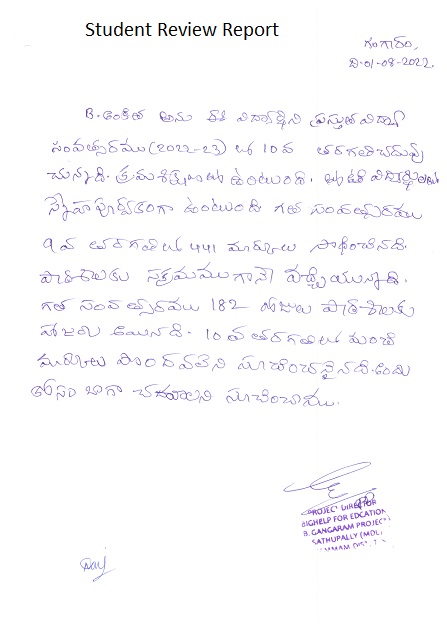 Student Review Report
గంగారం,
ది.01-08-2022
B. అంకిత అను ఈ విద్యార్థిని ప్రస్తుత విద్యా
సంవత్సరము(2022-23) లో 10వ తరగతి చదువు
చున్నది. క్రమశిక్షణ ఉంటుంది.
స్నేహపూర్వకంగా ఉంటుంది. గత సంవత్సరము
9వ తరగతిలో 441 మార్కులు సాధించినది.
పాఠశాలకు సక్రమముగానే వచ్చియున్నది.
గత సంవత్సరము 182 రోజులు పాఠశాలకు
హాజరు అయినది. 10వ తరగతిలో మంచి
మార్కులు పొందవలెని సూచించనైనది. అందు
కోసం బాగా చదవాలని సూచించాము.
PROJECT DIRECTOR
BIGHELP FOR EDCATION
B. GANGARAM PROJECT
SATHUPALLY (MDL)